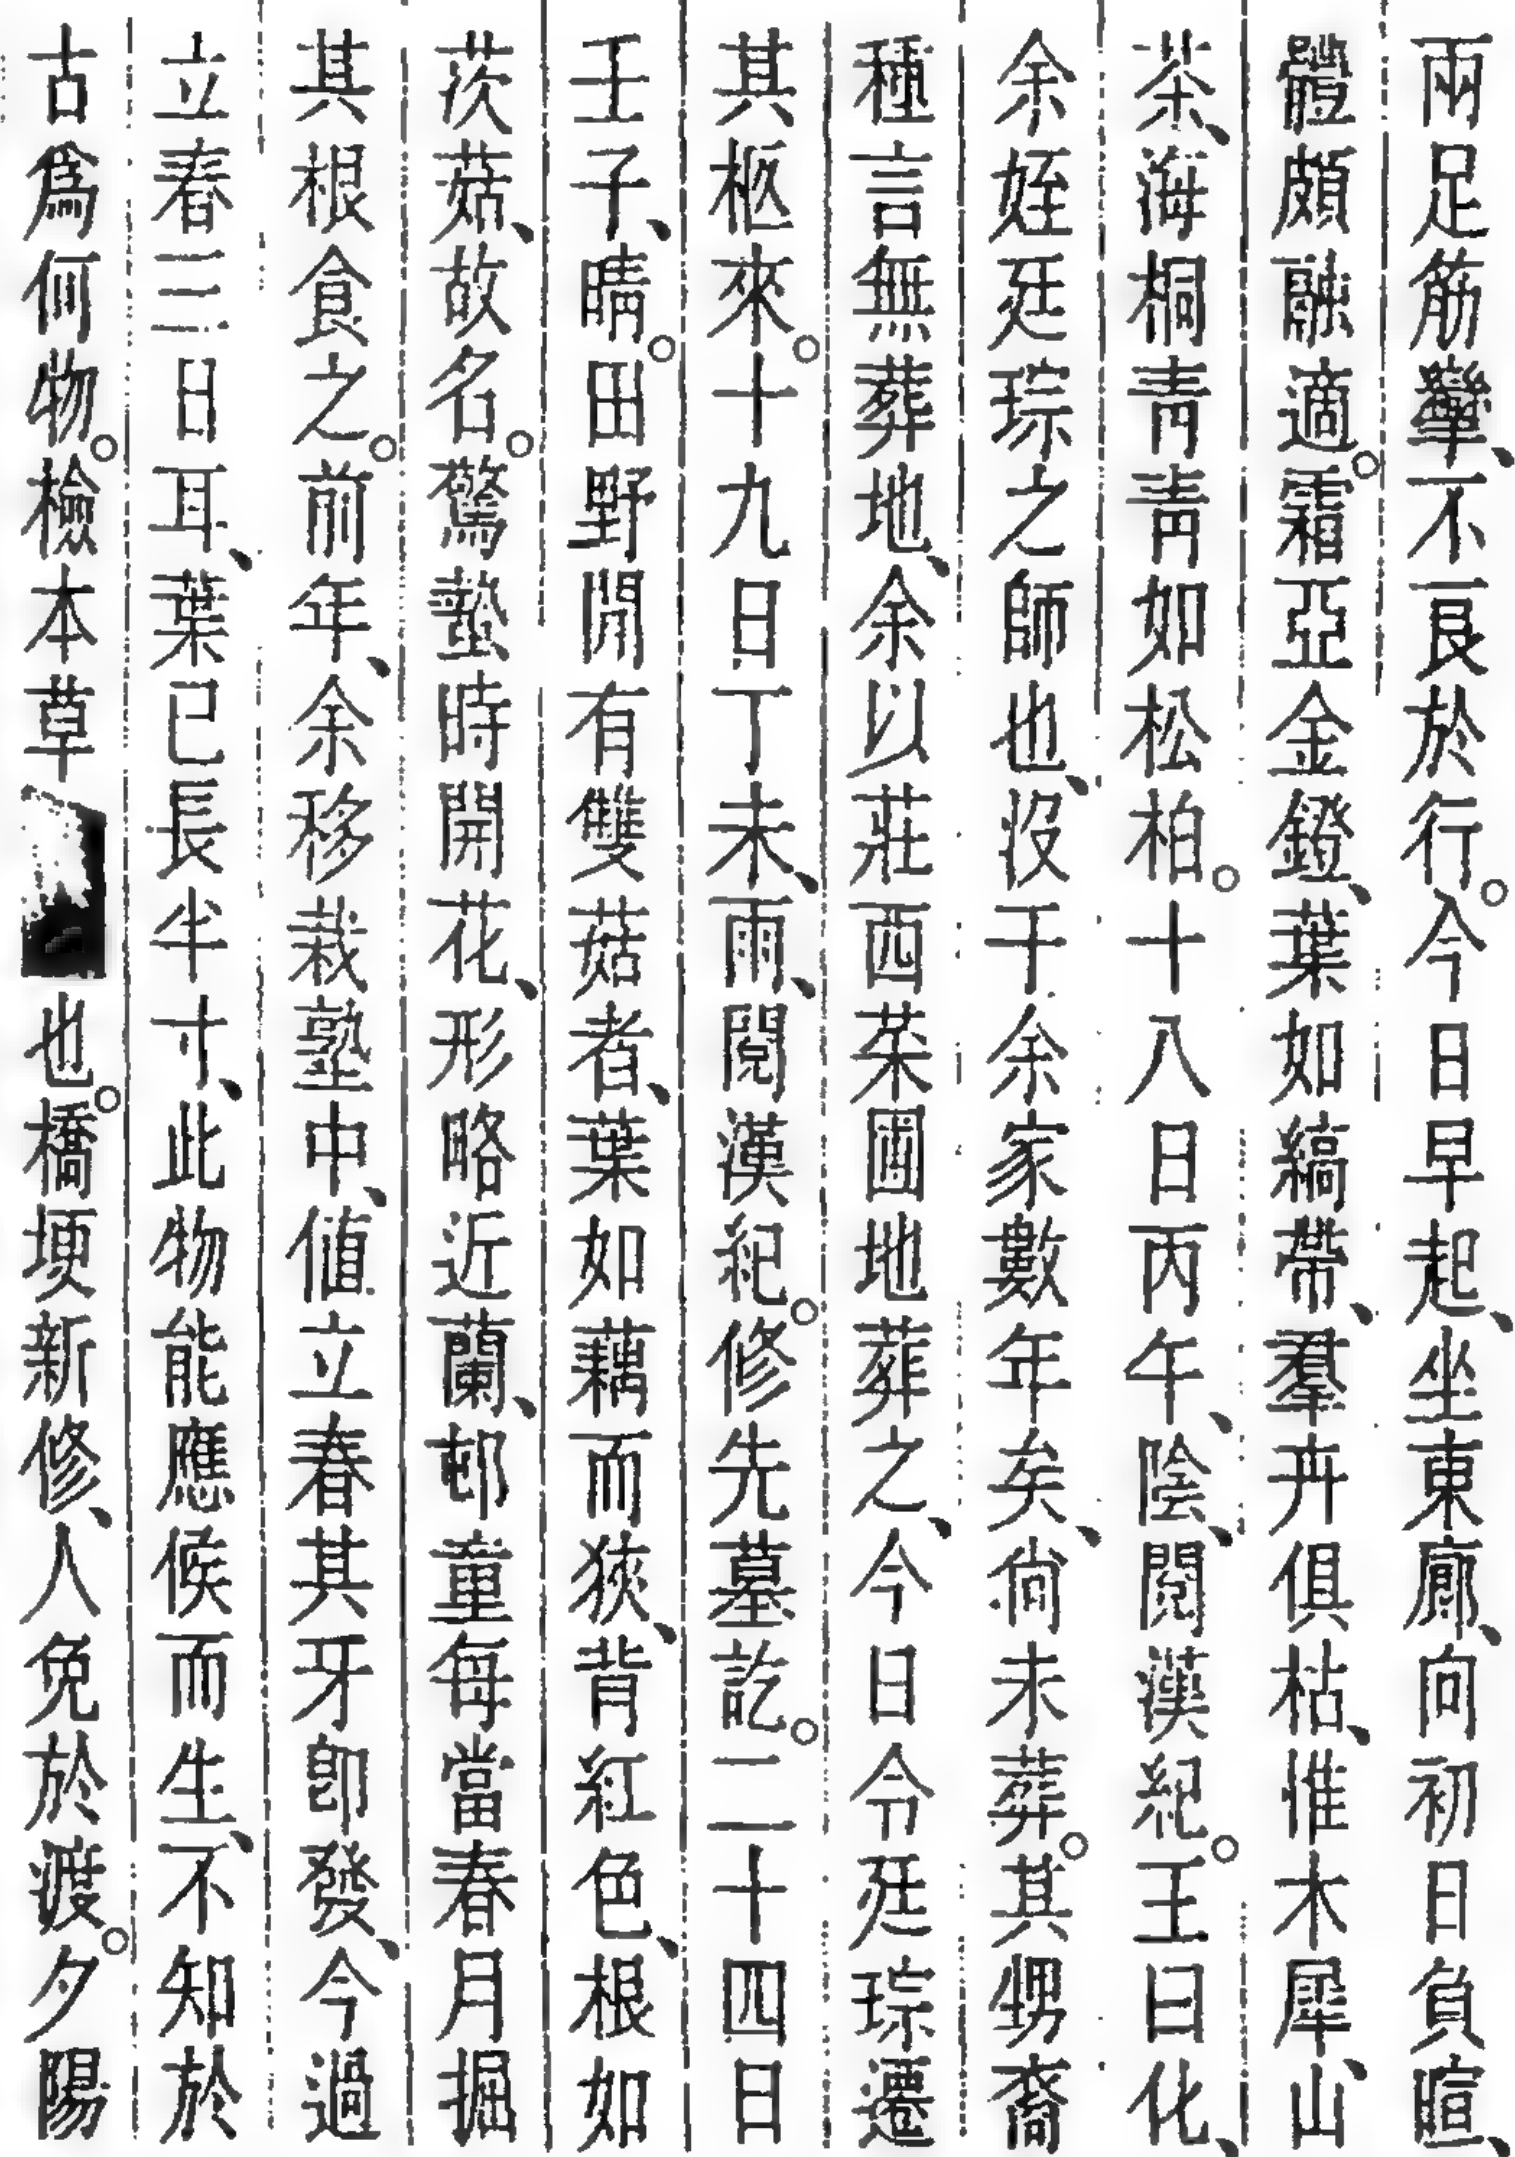 兩足筋攣、不良於行。今日早起、坐東廊、向初日負暄、
體頗融適。霜亞金鐙、葉如縞帶、羣卉俱枯、惟木犀、山
茶、海桐青青如松柏。十八日丙午、陰、閱漢紀。王日化、
余姪廷琮之師也、沒于余家數年矣、尙未葬。其甥裔
種言無葬地、余以莊西菜圃地葬之、今日令廷琮遷
其柩來。十九日丁未、雨、閱漢紀。修先墓訖。二十四日
壬子、晴。田野閒有雙菇者、葉如藕而狹、背紅色、根如
茨菇、故名。驚蟄時開花、形略近蘭、邨童每當春月掘
其根食之。前年、余移栽塾中、値立春其牙卽發、今過
立春三日耳、葉已長半寸、此物能應候而生、不知於
古爲何物。檢本草也。橋埂新修、人免於渡。夕陽